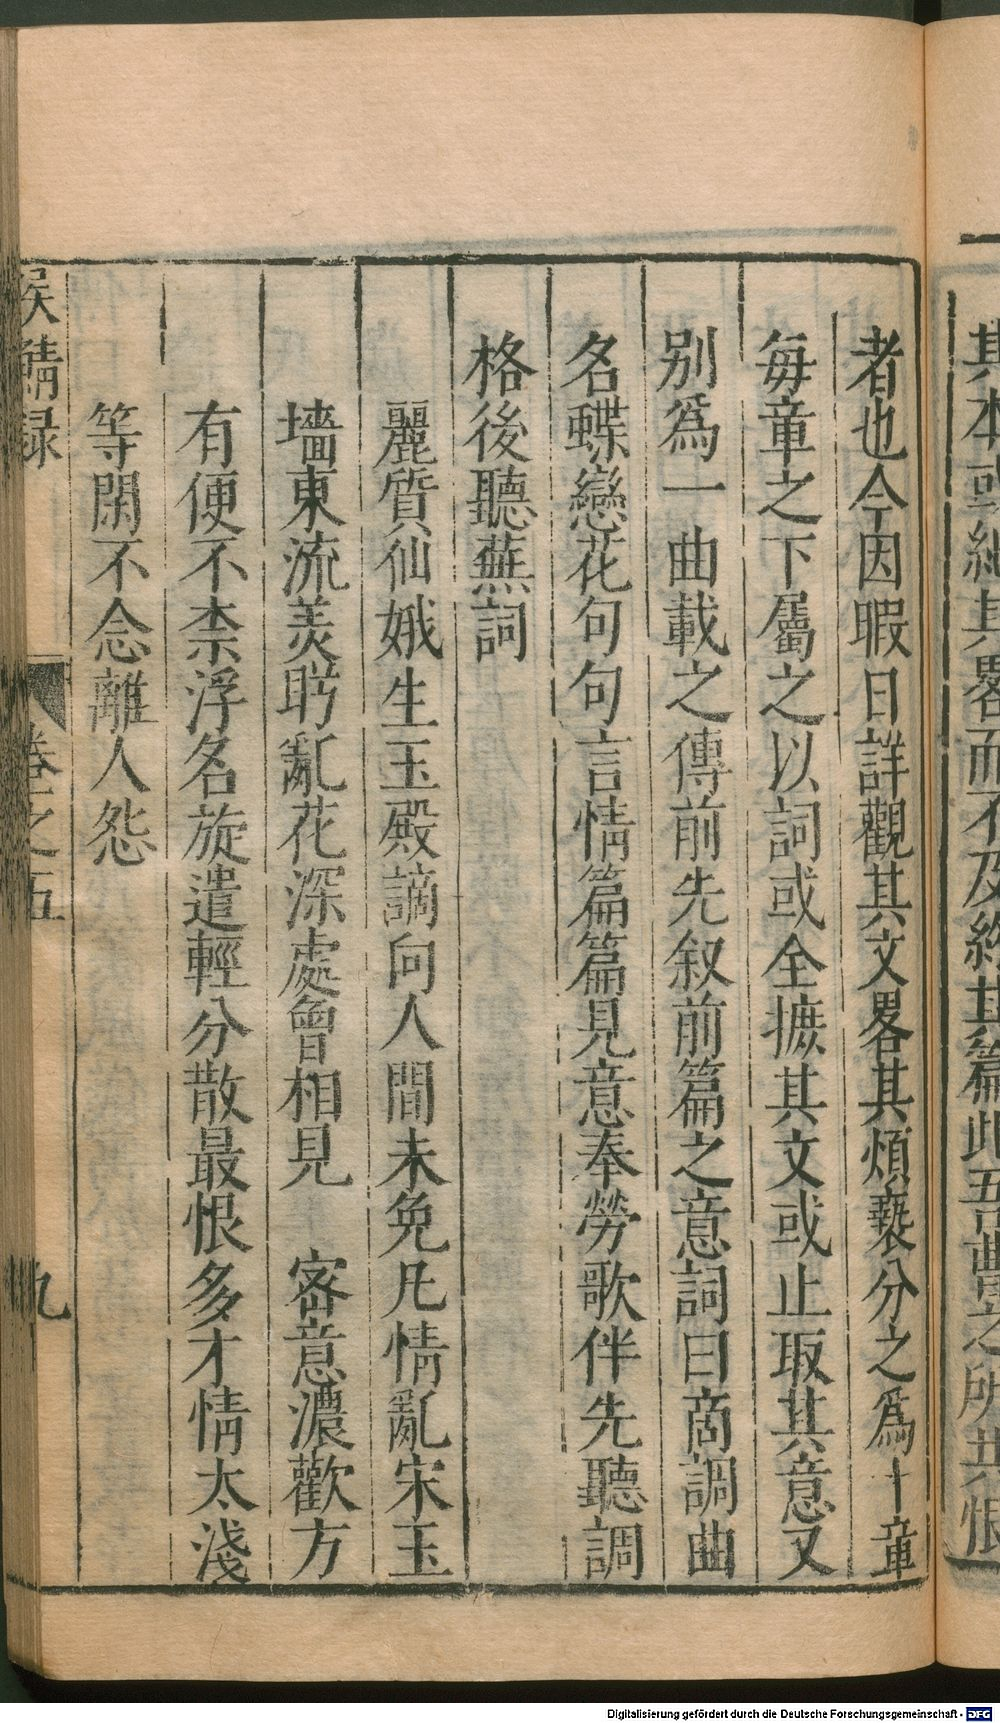 其本或紀其畧而不及終其篇此吾曹之所共恨
者也今因暇日詳觀其文畧其煩䙝分之爲十章
毎章之下屬之以詞或全摭其文或止取其意又
别爲一曲載之傳前先叙前篇之意詞曰商調曲
名蝶戀花句句言情篇篇見意奉勞歌伴先聽調
格後聽蕪詞
麗質仙娥生玉殿謫向人間未免凡情亂宋玉
墻東流羙盻亂花深處曾相見　密意濃歡方
有便不柰浮名旋遣輕分散最恨多才情太淺
等閑不念離人怨
侯鯖録　卷之五　九
Digitalisierung gefördert durch die Deutsche Forschungsgemeinschaft - DFG